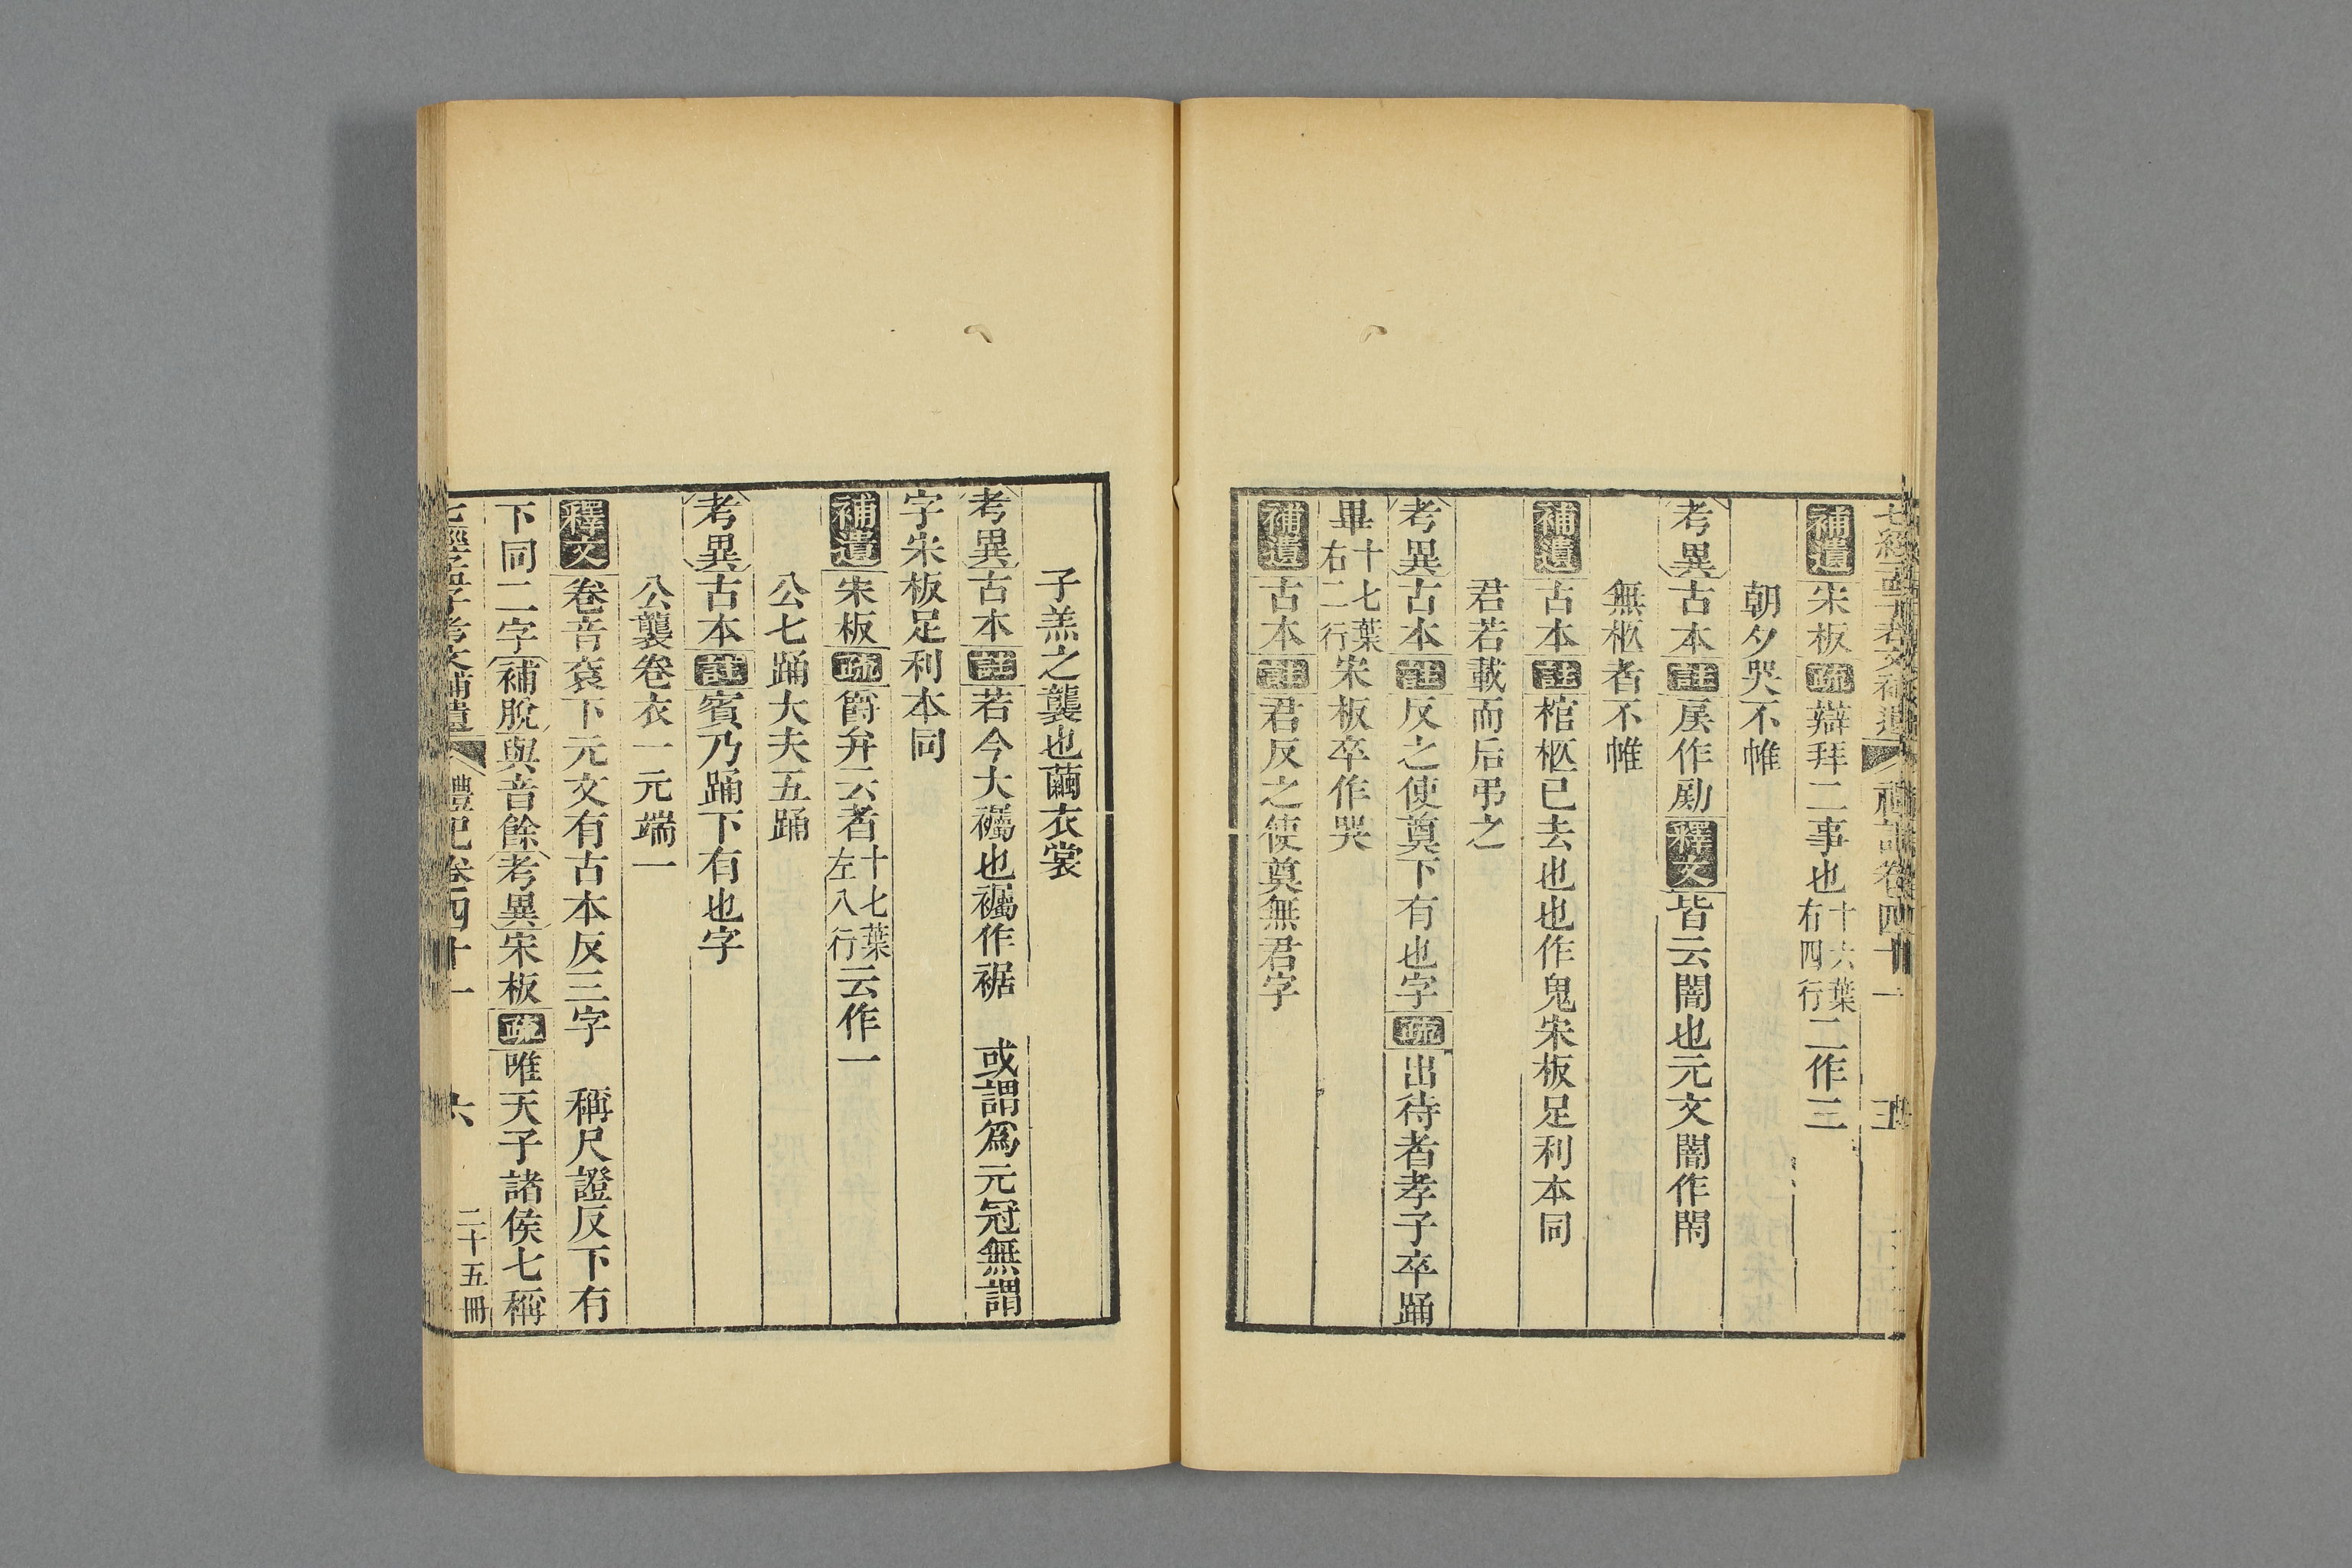 補遺 宋板 疏 辯拜二事也 十六葉右四行 二作三
朝夕哭不帷
考異 古本 註 戾作勵 釋文 皆云闇也元文闇作閇
無柩者不帷
補遺 古本 註 棺柩已去也也作鬼宋板足利本同
君若載而后弔之
考異 古本 註 反之使奠下有也字 疏 出待者孝子卒踊
畢 十七葉右二行 宋板卒作哭
補遺 古本 註 君反之使奠無君字
子羔之襲也繭衣裳
考異 古本 註 若今大襡也襡作裾 或謂爲元冠無謂
字宋板足利本同
補遺 宋板 疏 爵弁云者 十七葉左八行 云作一
公七踊大夫五踊
考異 古本 註 賓乃踊下有也字
公襲卷衣一元端一
釋文 卷音袞下元文有古本反三字 稱尺證反下有
下同二字 補脫 與音餘 考異 宋板 疏 唯天子諸侯七稱
七經孟子考文補遺 禮記卷四十一 六 二十五冊